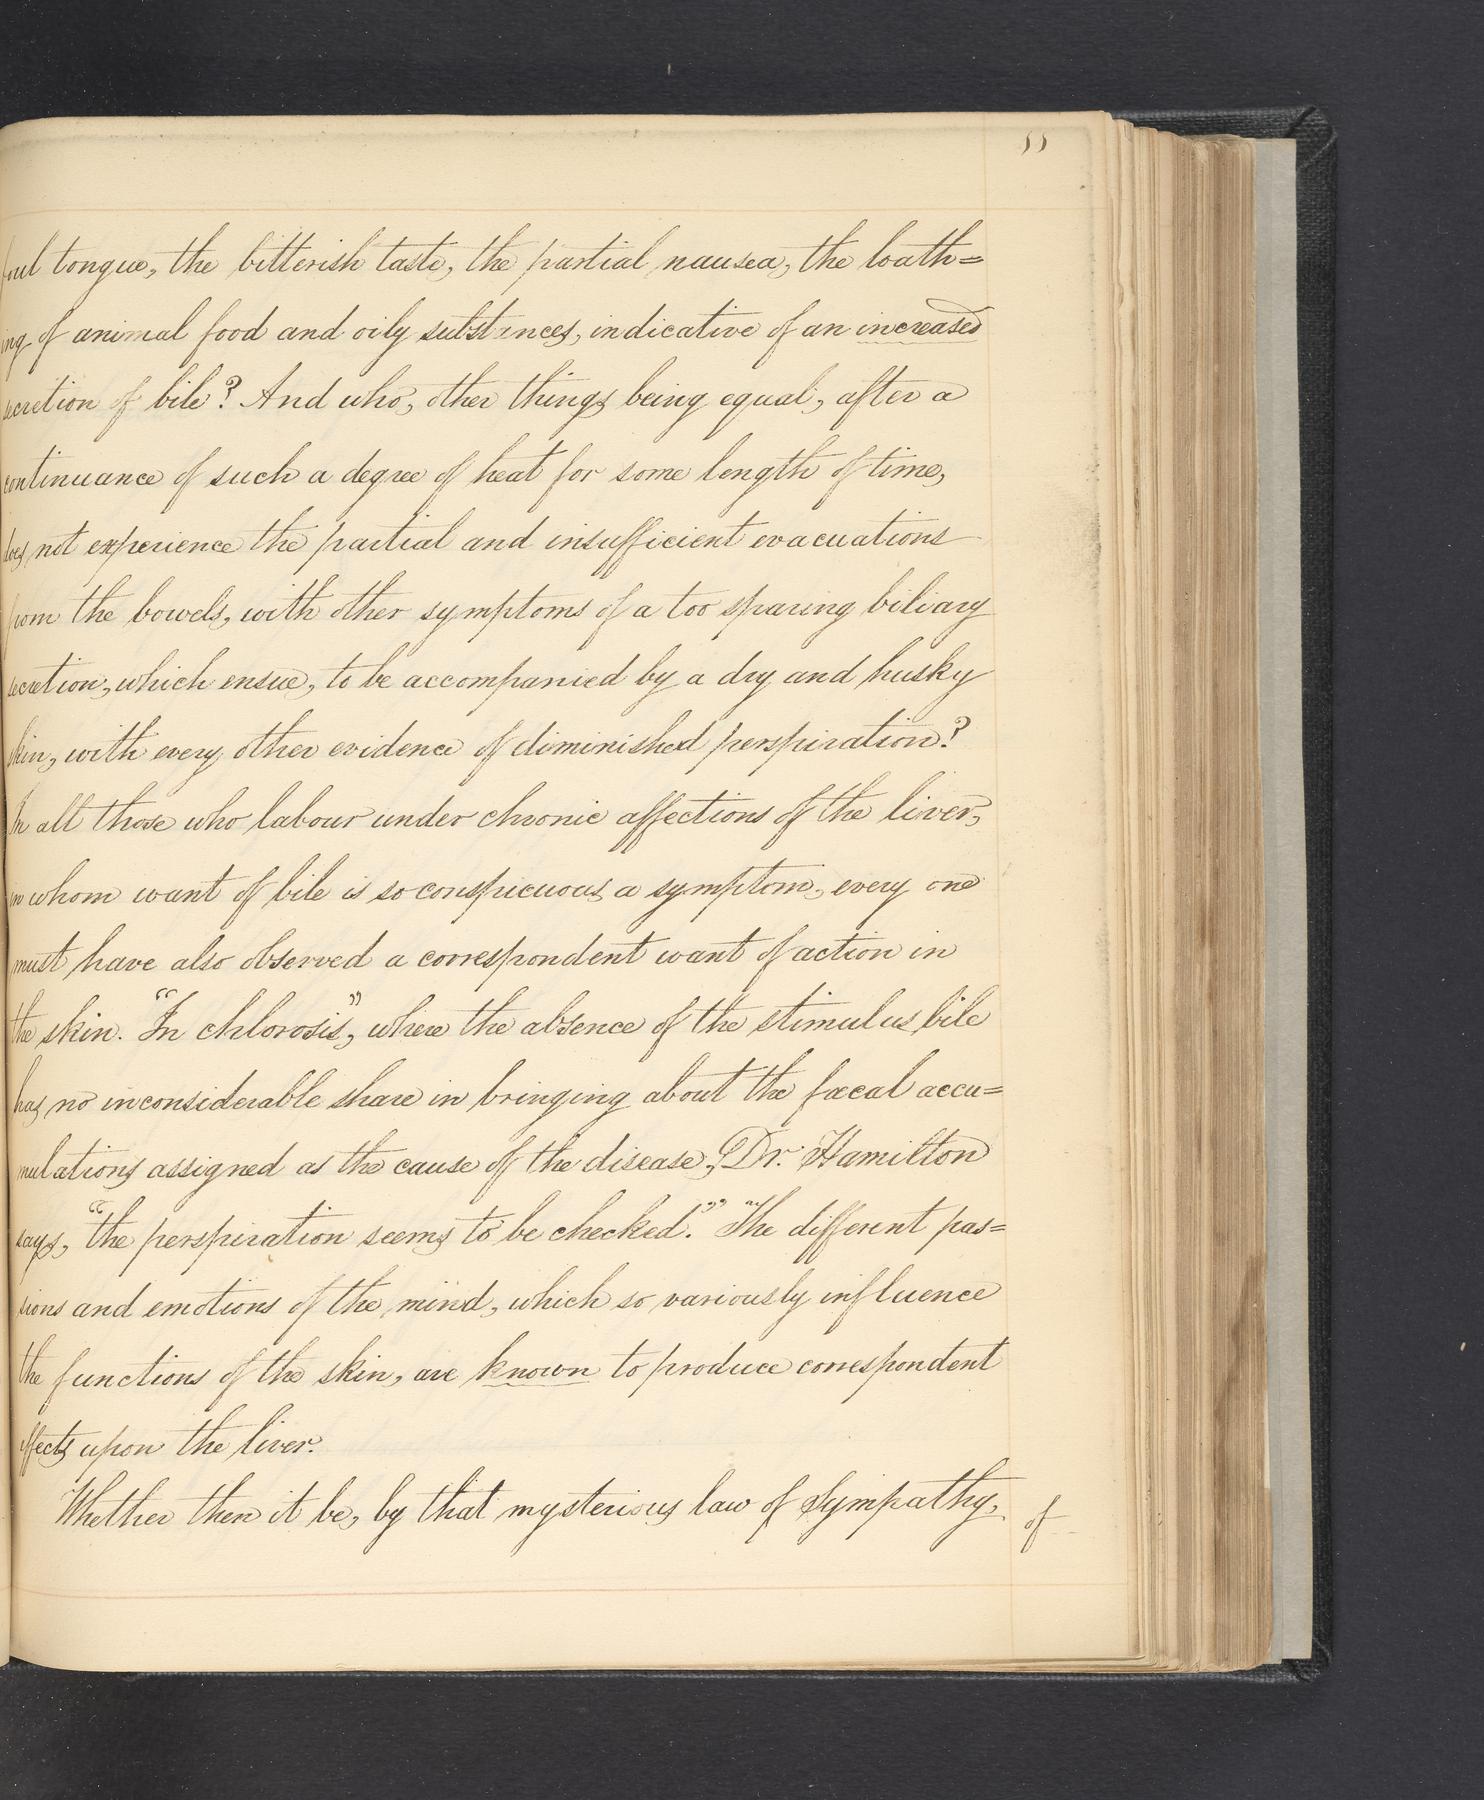 11
foul tongue, the bitterish taste, the partial nausea, the loath=
ing of animal food and oily substances, indicative of an increased
secretion of bile? And who, other things being equal, after a
continuance of such a degree of heat for some length of time,
does not experience the partial and insufficient evacuations
from the bowels, with other symptoms of a too sparing biliary
secretion, which ensue, to be accompanied by a dry and husky
skin, with every other evidence of diminished perspiration?
In all those who labour under chronic affections of the liver,
in whom want of bile is so conspicuous a symptom, every one
must have also observed a correspondent want of action in
the skin. "In chlorosis", where the absence of the stimulus bile
has no inconsiderable share in bringing about the fæcal accu=
mulations assigned as the cause of the disease, Dr. Hamilton
says, "the perspiration seems to be checked." The different pas=
sions and emotions of the mind, which so variously influence
the functions of the skin, are known to produce correspondent
effects upon the liver.
Whether then it be, by that mysterious law of Sympathy,
of